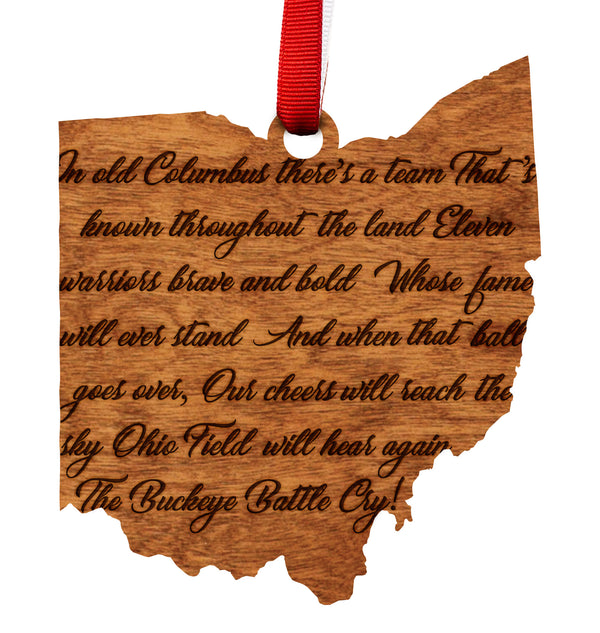 In old Columbus there's a team That's
known throughout the land Eleven
warriors brave and bold Whose fame
will ever stand And when that ball
goes over, Our cheers will reach the
sky Ohio Field will hear again
The Buckeye Battle Cry!